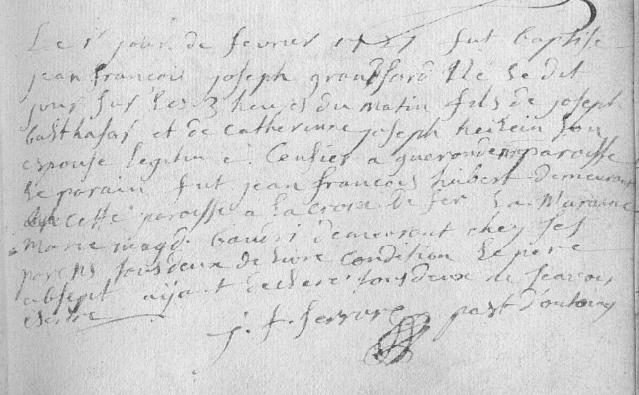 Le 1r jour de fevrier 1727 fut baptise
jean francois joseph grandfard Né Le dit
jour sur Les 3 heures du matin fils de joseph
balthasar et de catherinne joseph heilein son
espouse legitime Censier a paroisse
Le parain fut jean francois hubert demeurant
cette paroisse a La croix de fer La Maraine
Marie magd. demeurant chez ses
parens tous deux de Livre condition Le pere
absent aijant declaré tous deux ne scavoir
escrire
j. f. ferrare past d'oultour